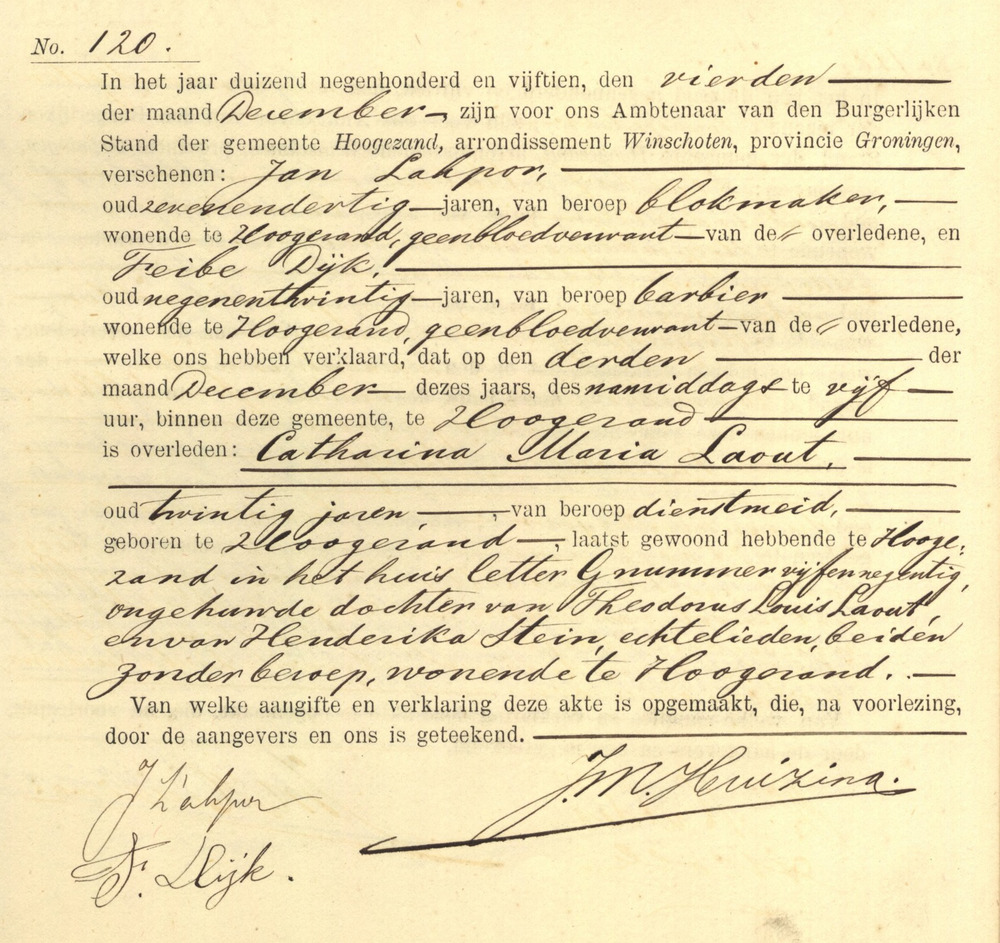 No. 120.
In het jaar duizend negenhonderd en vijftien, den vierden
der maand December zijn voor ons Ambtenaar van den Burgerlijken
Stand der gemeente Hoogezand, arrondissement Winschoten, provincie Groningen,
verschenen: Jan Lahpor,
oud zevenendertig jaren, van beroep blokmaker,
wonende te Hoogezand, geenbloedverwant van de overledene, en
Feibe Dijk,
oud negenentwintig jaren, van beroep barbier
wonende te Hoogezand, geenbloedverwant van de overledene,
welke ons hebben verklaard, dat op den derden der
maand December dezes jaars, des namiddags te vijf
uur, binnen deze gemeente, te Hoogezand
is overleden: Catharina Maria Laout,
oud twintig jaren, van beroep dienstmeid,
geboren te Hoogezand, laatst gewoond hebbende te Hooge-
zand in het huis letter G nummer vijfennegentig,
ongehuwde dochter van Theodorus Louis Laout
en van Henderika Stein, echtelieden, beiden
zonder beroep, wonende te Hoogezand.
Van welke aangifte en verklaring deze akte is opgemaakt, die, na voorlezing,
door de aangevers en ons is geteekend.
J Lahpor
J. M. Huizina.
F. Dijk.